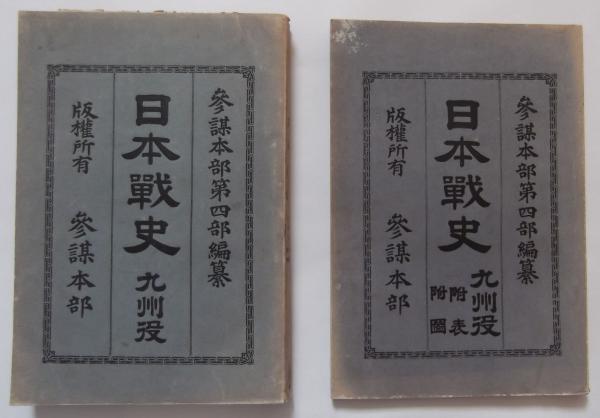 參謀本部第四部編纂
日本戰史 九州役
版權所有 參謀本部
參謀本部第四部編纂
日本戰史 九州役
附表
附圖
版權所有 參謀本部